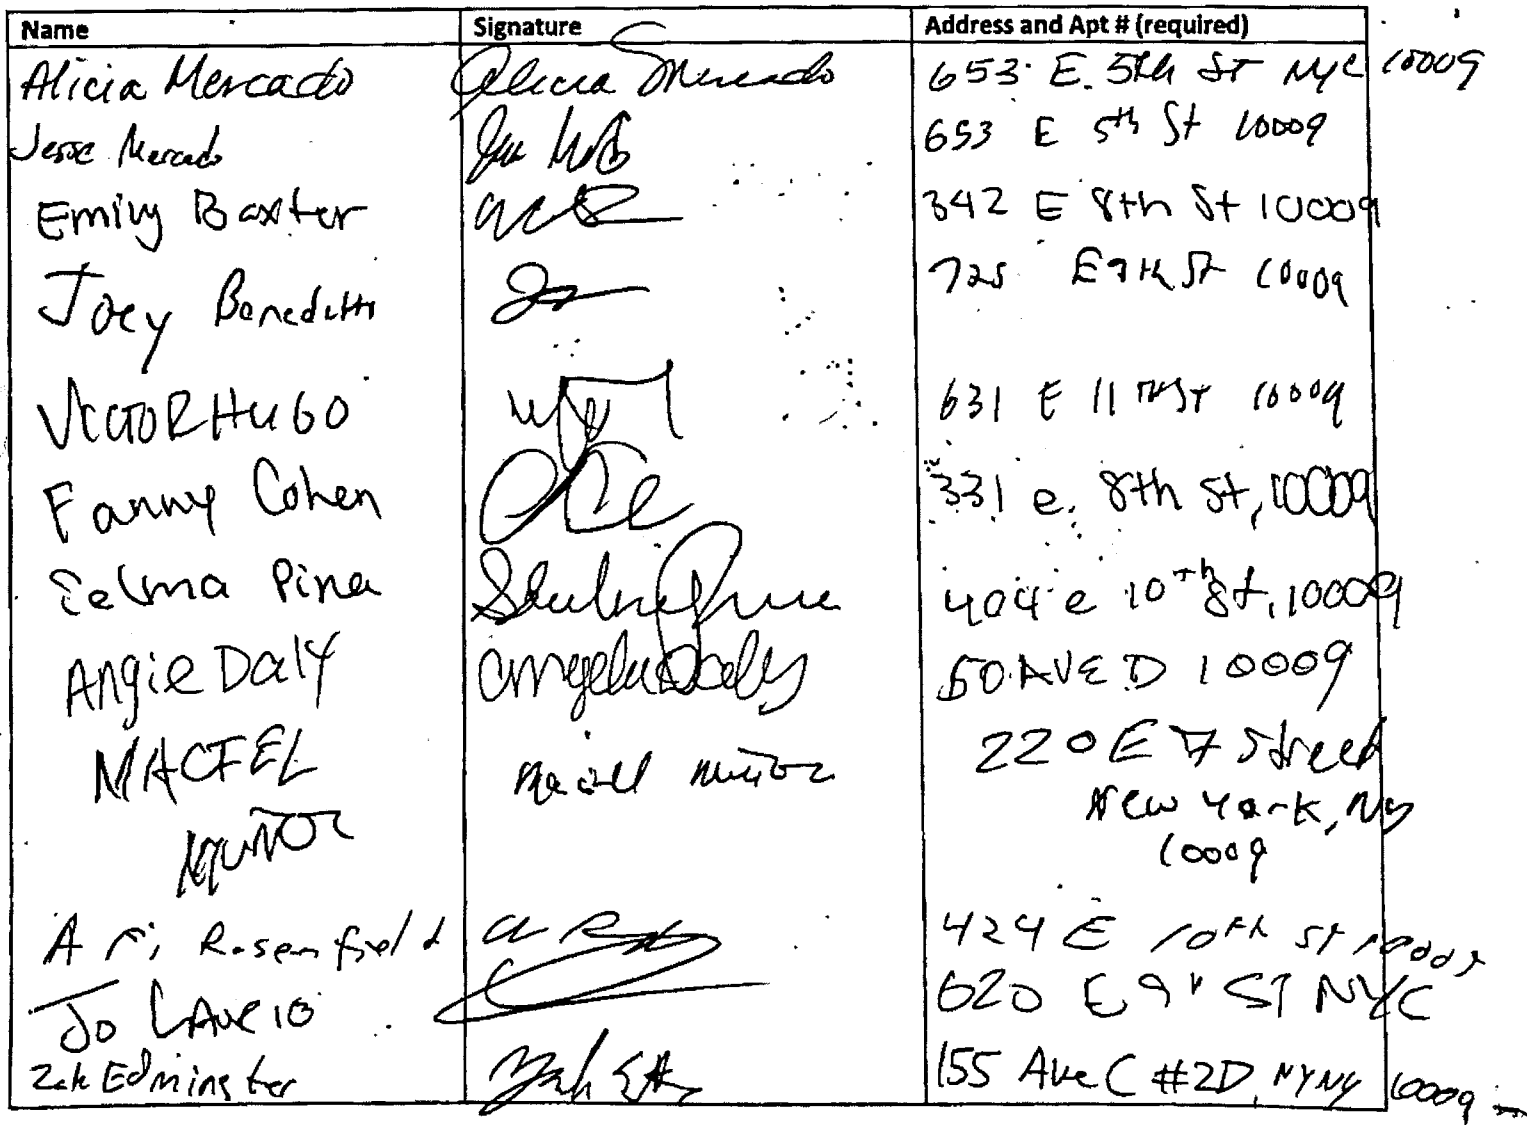 Name Signature Address and Apt # (required)
Alicia Mercado Alicia Mercado 653 E. 5th St NYC 10009
Jesse Mercado 653 E 5th St 10009
Emily Baxter 342 E 8th St 10009
Joey Benedetti 725 E 9th St 10009
VICTOR HUGO 631 E 11 TH ST 10009
Fanny Cohen 331 e. 8th St, 10009
Selma Pina 404 e 10th St, 10009
Angie Daly Angela Daly 50 AVE D 10009
220 E 7 Street
MUÑOZ Muñoz New York, Ny
10009
Ari Rosenfield 424 E 10th St 10009
Jo 620 E 9" ST NYC
Zak Edminster 155 Ave C #2D, NYNY 10009